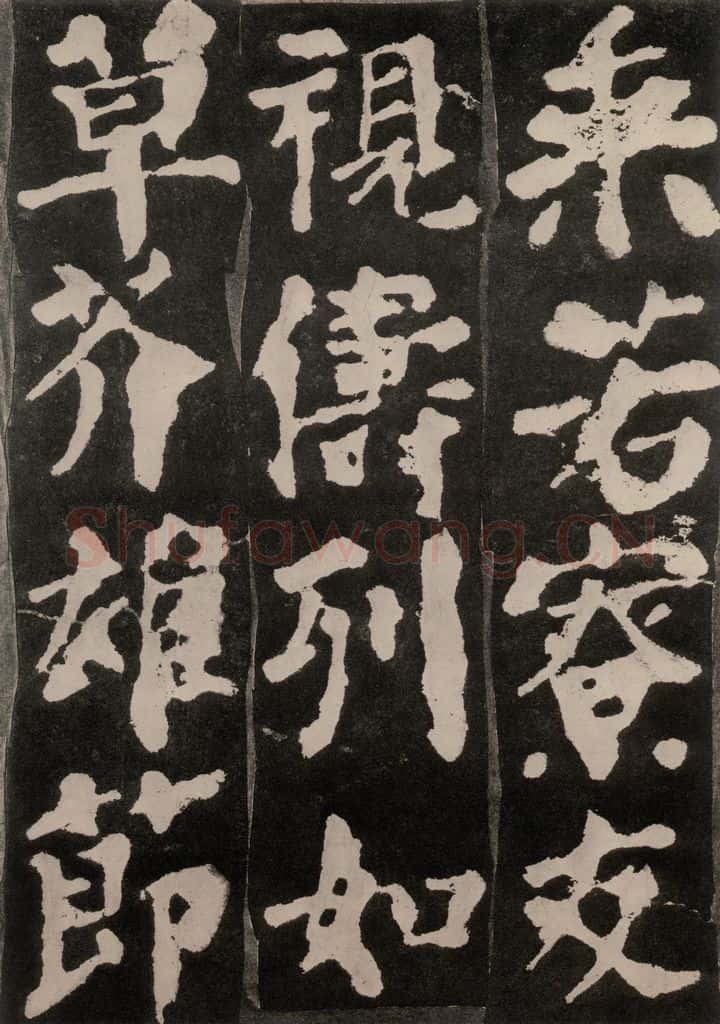 乘若寮友
視儔列如
草芥雄節
Shufawang.CN